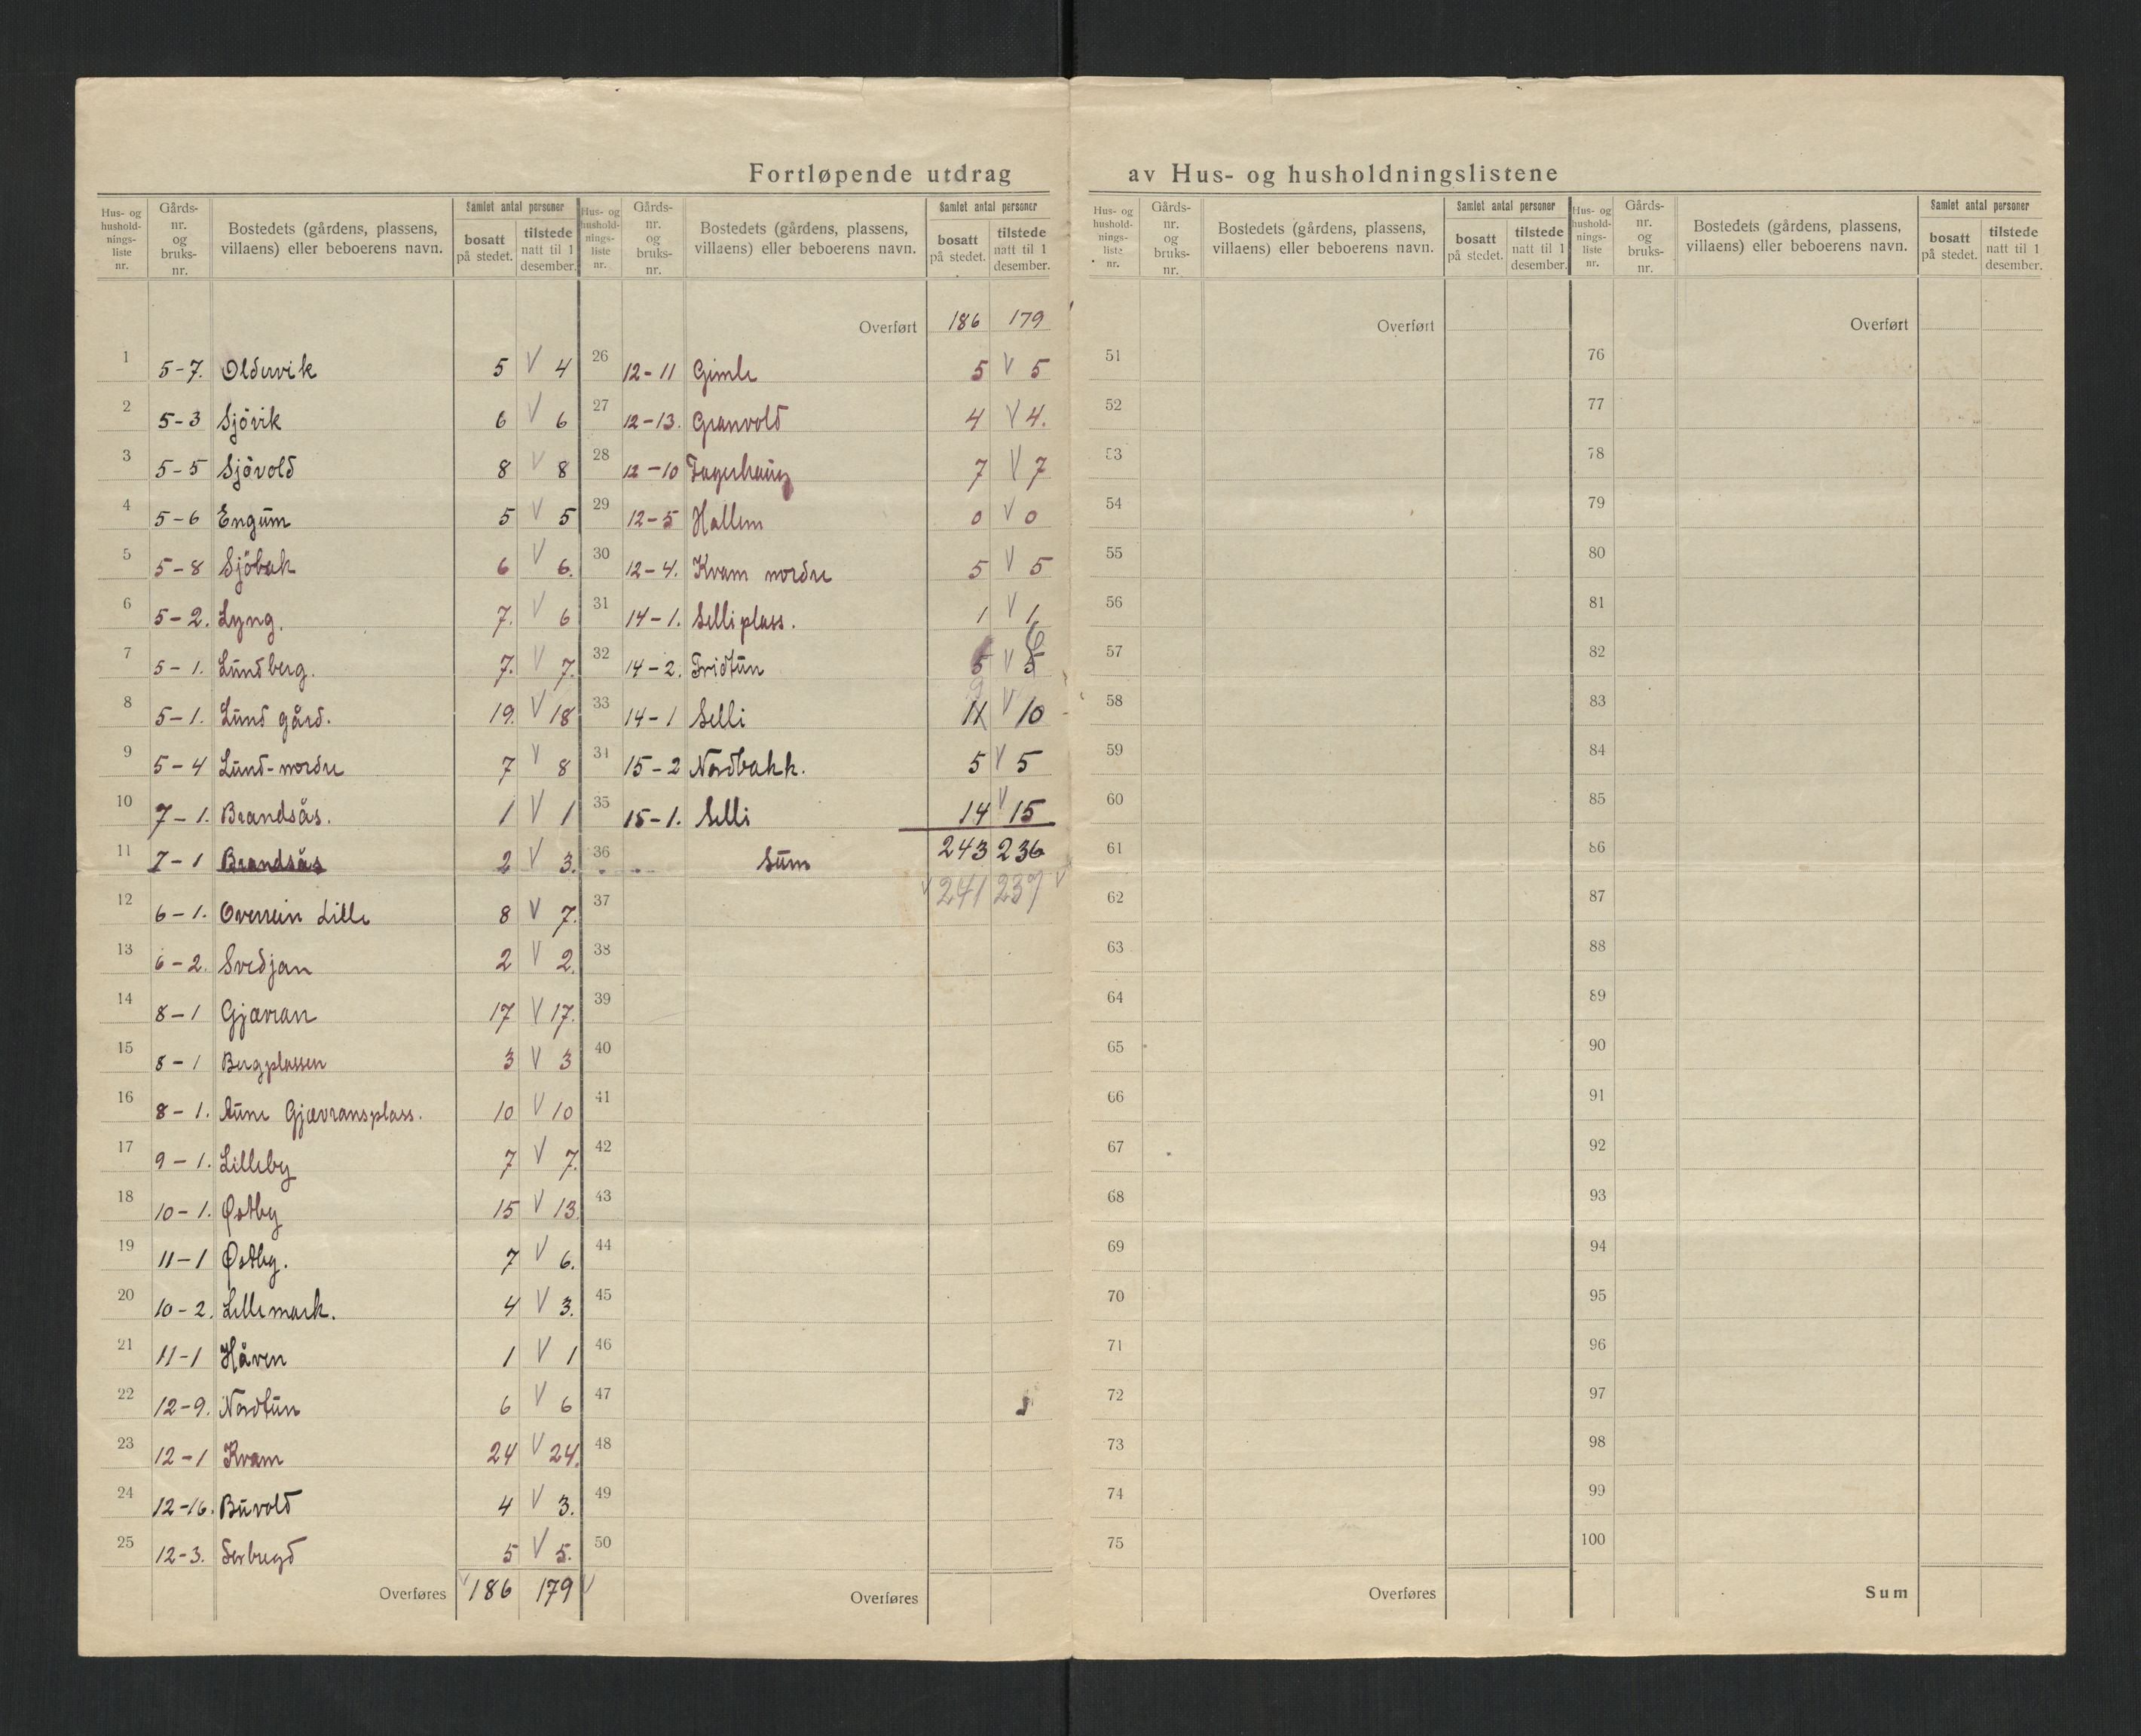 Fortløpende utdrag av Hus- og husholdningslistene
Hus- og hushold- nings- liste nr. Gårds- nr. og bruks- nr. Bostedets (gårdens, plassens, villaens) eller beboerens navn. Samlet antal personer bosatt på stedet. tilstede natt til 1 desember.
1 5-7. Oldervik 5 V 4
2 5-3 Sjövik 6 V 6
3 5-5 Sjövold 8 V 8
4 5-6 Engum 5 V 5
5 5-8 Sjöbak 6 V 6.
6 5-2. Lyng. 7. V 6
7 5-1. Lundberg. 7. V 7.
8 5-1. Lund gård. 19. V 18
9 5-4 Lund-nordre 7 V 8
10 7-1. Brandsås. 1 V 1
11 7-1 Brandsås 2 V 3.
12 6-1. Overrein Lille 8 V 7.
13 6-2. Svedjan 2 V 2.
14 8-1 Gjævran 17 V 17.
15 8-1 Bergplassen 3 V 3
16 8-1. Aune Gjævransplass. 10 V 10
17 9-1. Lilleby 7 V 7.
18 10-1. Østby 15 V 13.
19 11-1 Østby. 7 V 6.
20 10-2. Lillemark. 4 V 3.
21 11-1 Håven 1 V 1
22 12-9. Nordtun 6 V 6
23 12-1 Kvam 24 V 24.
24 12-16. Buvold 4 V 3.
25 12-3. 5 V 5.
Overføres V 186 179 V
Hus- og hushold- nings- liste nr. Gårds- nr. og bruks- nr. Bostedets (gårdens, plassens, villaens) eller beboerens navn. Samlet antal personer bosatt på stedet. tilstede natt til 1 desember.
Overført 186 179
26 12-11 Gimle 5 V 5
27 12-13. Granvold 4 V 4.
28 12-10 Fagerhaug 7 V 7
29 12-5 Hallem 0 V 0
30 12-4. Kvam nordre 5 V 5
31 14-1. Selliplass. 1 V 1
32 14-2. Fridtun 5 V 5 6
33 14-1 Selli 11 9 V 10
34 15-2 Nordbakk. 5 V 5
35 15-1. Selli 14 V 15
36 Sum 243 236
37 V 241 237 V
38
39
40
41
42
43
44
45
46
47
48
49
50
Overføres
Hus- og hushold- nings- liste nr. Gårds- nr. og bruks- nr. Bostedets (gårdens, plassens, villaens) eller beboerens navn. Samlet antal personer bosatt på stedet. tilstede natt til 1 desember.
Overført
51
52
53
54
55
56
57
58
59
60
61
62
63
64
65
66
67
68
69
70
71
72
73
74
75
Overføres
Hus- og hushold- nings- liste nr. Gårds- nr. og bruks- nr. Bostedets (gårdens, plassens, villaens) eller beboerens navn. Samlet antal personer bosatt på stedet. tilstede natt til 1 desember.
Overført
76
77
78
79
80
81
82
83
84
85
86
87
88
89
90
91
92
93
94
95
96
97
98
99
100
Sum